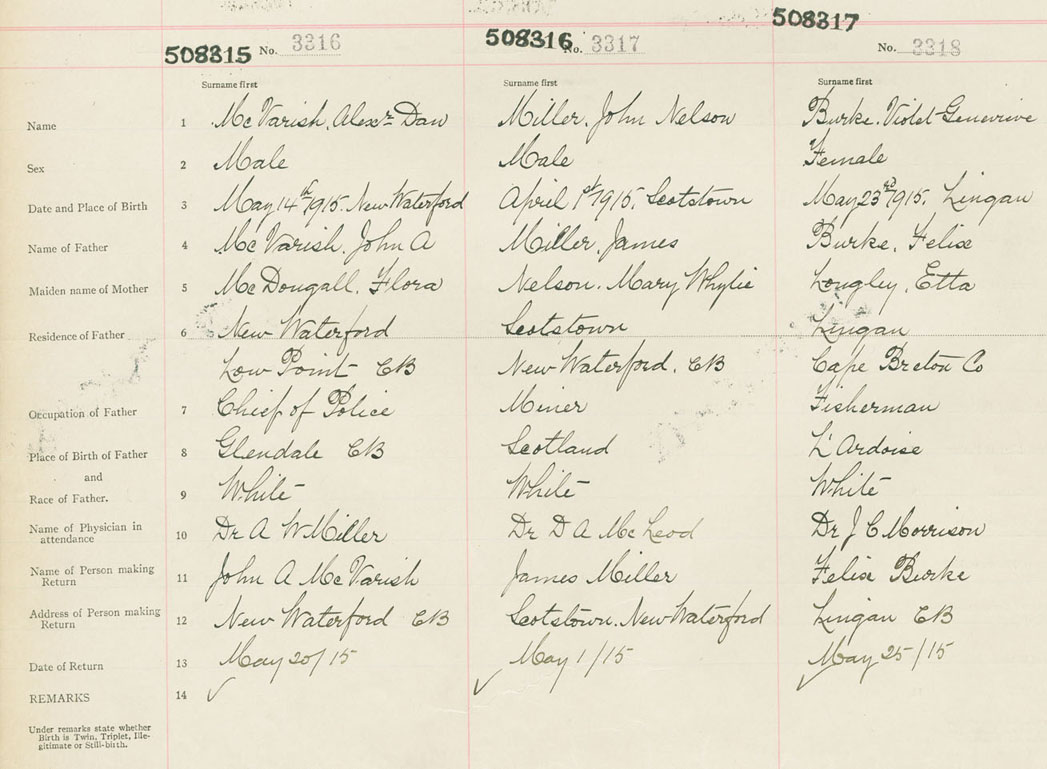 508315 No. 3316 508316 No. 3317 508317 No. 3318
Surname first Surname first Surname first
Name 1 McVarish, Alexr Dan Miller, John Nelson Burke, Violet Genevive
Sex 2 Male Male Female
Date and Place of Birth 3 May 14th/1915. New Waterford April 1st/1915, Scotstown May 23rd/1915, Lingan
Name of Father 4 McVarish, John A Miller, James Burke, Felix
Maiden name of Mother 5 McDougall, Flora Nelson, Mary Whylie Longley, Etta
Residence of Father 6 New Waterford Scotstown Lingan
Low Point CB New Waterford, CB Cape Breton Co
Occupation of Father 7 Chief of Police Miner Fisherman
Place of Birth of Father 8 Glendale CB Scotland L'Ardoise
and
Race of Father. 9 White White White
Name of Physician in
attendance 10 Dr A W Miller Dr D A McLeod Dr J C Morrison
Name of Person making
Return 11 John A McVarish James Miller Felix Burke
Address of Person making
Return 12 New Waterford CB Scotstown. New Waterford Lingan CB
Date of Return 13 May 20/15 May 1/15 May 25/15
REMARKS 14 ✓ ✓ ✓
Under remarks state whether
Birth is Twin, Triplet, Ille-
gitimate or Still-birth.